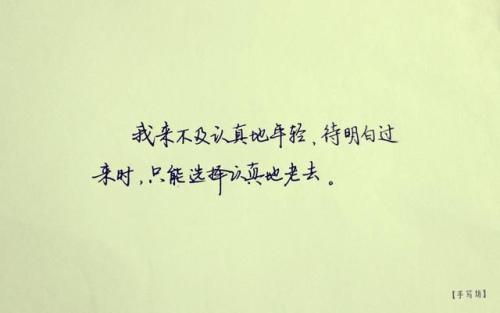 我来不及认真地年轻，待明白过
来时，只能选择认真地老去。
【手写的】